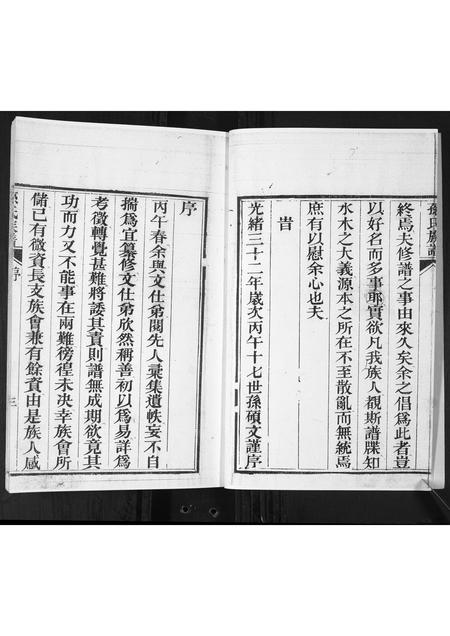 孫氏族譜
終焉夫修譜之事由來久矣余之倡爲此者豈
以好名而多事耶實欲凡我族人覩斯譜牒知
水木之大義源本之所在不至散亂而無統焉
庶有以慰余心也夫
旹
光緒三十二年歲次丙午十七世孫碩文謹序
序
丙午春余與文仕弟閱先人彙集遺帙妄不自
揣爲宜纂修文仕弟欣然稱善初以爲易詳爲
考徵轉覺甚難將諉其責則譜無成期欲竟其
功而力又不能事在兩難徬徨未決幸族會所
儲已有微資長支族會兼有餘資由是族人咸
序
三